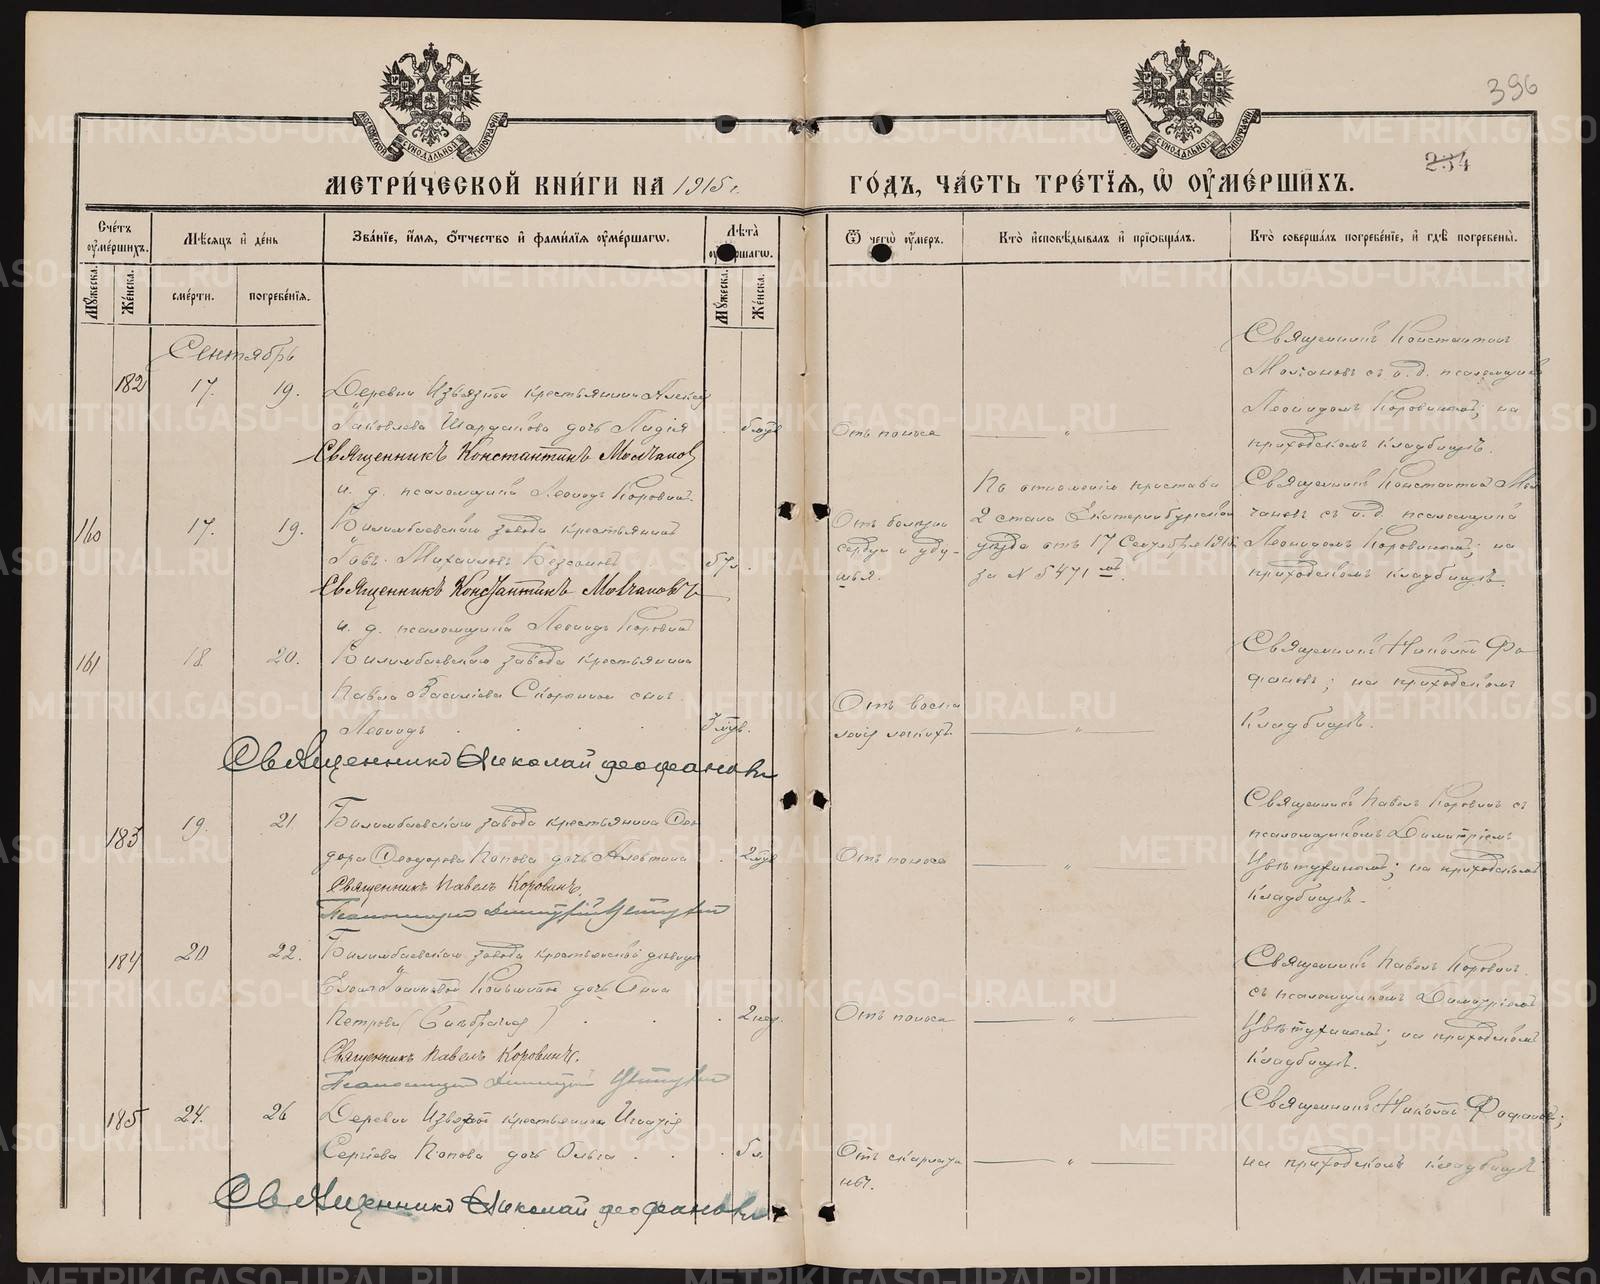 396
234
МОСКОВСКОЙ СѴНОДАЛЬНОЙ ТИПОГРАФІИ
МОСКОВСКОЙ СѴНОДАЛЬНОЙ ТИПОГРАФІИ
МЕТРИ́ЧЕСКОЙ КНИ́ГИ НА 1915 г.
ГО́ДЪ, ЧА́СТЬ ТРЕ́ТЇѦ, Ѡ҆ ОУ҆МЕ́РШИХЪ.
Сче́тъ оу҆ме́ршихъ.
Мꙋ́жеска.
Же́нска.
Мѣ́сѧцъ и҆ де́нь
сме́рти.
погребе́нїѧ.
Зва́нїе, и҆́мѧ, ѻ҆́тчество и҆ фамилїѧ оу҆ме́ршагѡ.
Лѣ́та оу҆ме́ршагѡ.
Мꙋ́жеска.
Же́нска.
Ѿ чегѡ̀ оу҆́меръ.
Кто̀ и҆сповѣ́дывалъ и҆ прїѡбща́лъ.
Кто̀ соверша́лъ погребе́нїе, и҆ гдѣ̀ погребены̀.
Сентябрь
182 17. 19.
Деревни Извязной крестьянина Алексѣя
Яковлева Шардакова дочь Лидія
Священникъ Константинъ Молчановъ
и. д. псаломщика Леонидъ Коровинъ
Отъ поноса
Священникъ Константинъ
Молчановъ съ и. д. псаломщика
Леонидомъ Коровинымъ; на
приходскомъ кладбищѣ.
160 17. 19.
Билимбаевскаго завода крестьянинъ
Михаиловъ
57 л.
Священникъ Константинъ Молчановъ
и. д. псаломщика Леонидъ Коровинъ
Отъ болѣзни
сердца и уду-
шья.
По отношенію пристава
2 стана Екатеринбургскаго
уѣзда отъ 17 Сентября 1915
за № 5471 мъ.
Священникъ Константинъ Мол
чановъ съ и. д. псаломщика
Леонидомъ Коровинымъ; на
приходскомъ кладбищѣ.
161 18 20.
Билимбаевскаго завода крестьянина
Павла Васильева сынъ
Леонидъ
3 мѣс.
Священникъ Николай Феофановъ
Отъ воспа
легкихъ
Священникъ Николай Фео
фановъ; на приходскомъ
кладбищѣ.
183 19. 21
Билимбаевскаго завода крестьянина Ѳео
дора Ѳеодорова Попова дочь Алевтина
2 мѣс.
Священникъ Павелъ Коровинъ.
Псаломщикъ Димитрій Цвѣтухинъ
Отъ поноса
Священникъ Павелъ Коровинъ съ
псаломщикомъ Димитріемъ
Цвѣтухинымъ; на приходскомъ
кладбищѣ.
184 20 22.
Билимбаевскаго завода крестьянской дѣвицы
дочь Анна
Петрова
2 нед.
Священникъ Павелъ Коровинъ.
Псаломщикъ Димитрій Цвѣтухинъ
Отъ поноса
Священникъ Павелъ Коровинъ
съ псаломщикомъ Димитріемъ
Цвѣтухинымъ; на приходскомъ
кладбищѣ.
185 24. 26
Деревни Извязной крестьянина Игнатія
Сергіева Попова дочь Ольга
5 л.
Священникъ Николай Феофановъ
Отъ скарлати
ны.
Священникъ Николай Феофановъ;
на приходскомъ кладбищѣ
METRIKI.GASO-URAL.RU